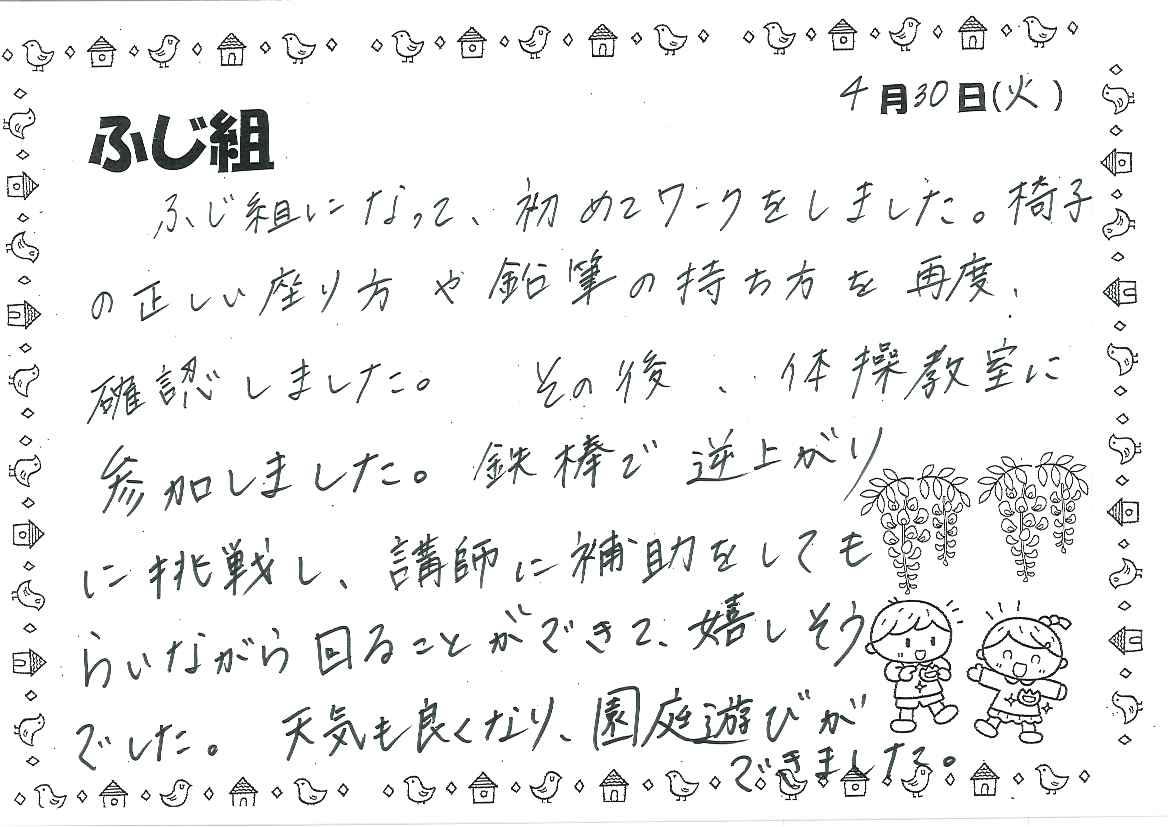 4月30日(火)
ふじ組
ふじ組になって、初めてワークをしました。椅子
の正しい座り方や鉛筆の持ち方を再度、
確認しました。 その後、体操教室に
参加しました。鉄棒で逆上がり
に挑戦し、講師に補助をしても
らいながら回ることができて、嬉しそう
でした。 天気も良くなり、園庭遊びが
できました。